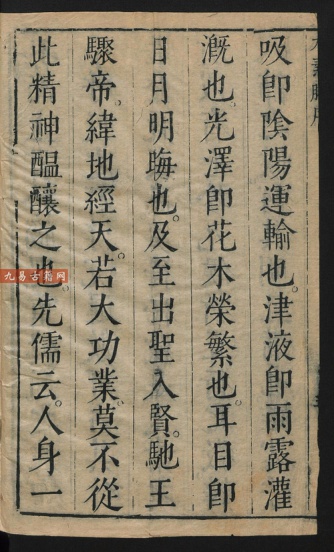 吸卽陰陽運輸也。津液卽雨露灌
漑也。光澤卽花木榮繁也。耳目卽
日月明晦也。及至出聖入賢。馳王
驟帝。緯地經天。若大功業。莫不從
此精神醞釀之也。先儒云。人身一
九易古籍网